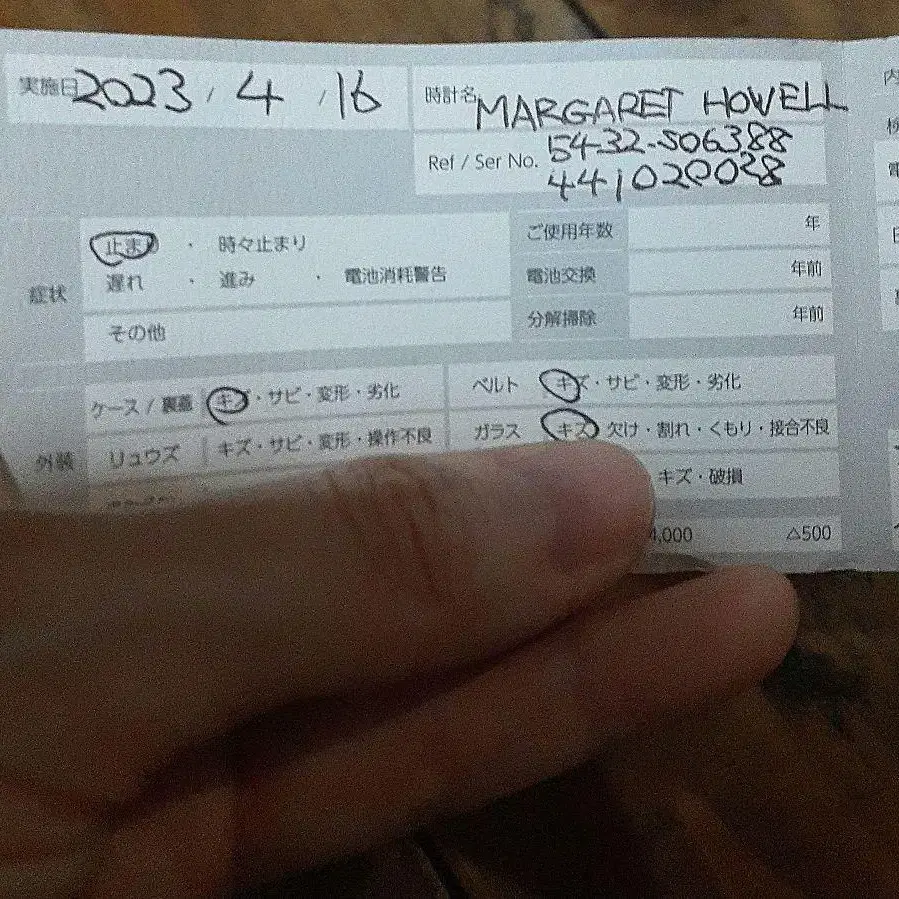 実施日 2023 / 4 / 16
時計名 MARGARET HOWELL
Ref / Ser No. 5432-S06388
441020028
症状
止まり ・ 時々止まり
遅れ ・ 進み ・ 電池消耗警告
その他
ご使用年数 年
電池交換 年前
分解掃除 年前
外装
ケース / 裏蓋 キズ・サビ・変形・劣化
ベルト キズ・サビ・変形・劣化
リュウズ キズ・サビ・変形・操作不良
ガラス キズ・欠け・割れ・くもり・接合不良
キズ・破損
4,000 △500
内